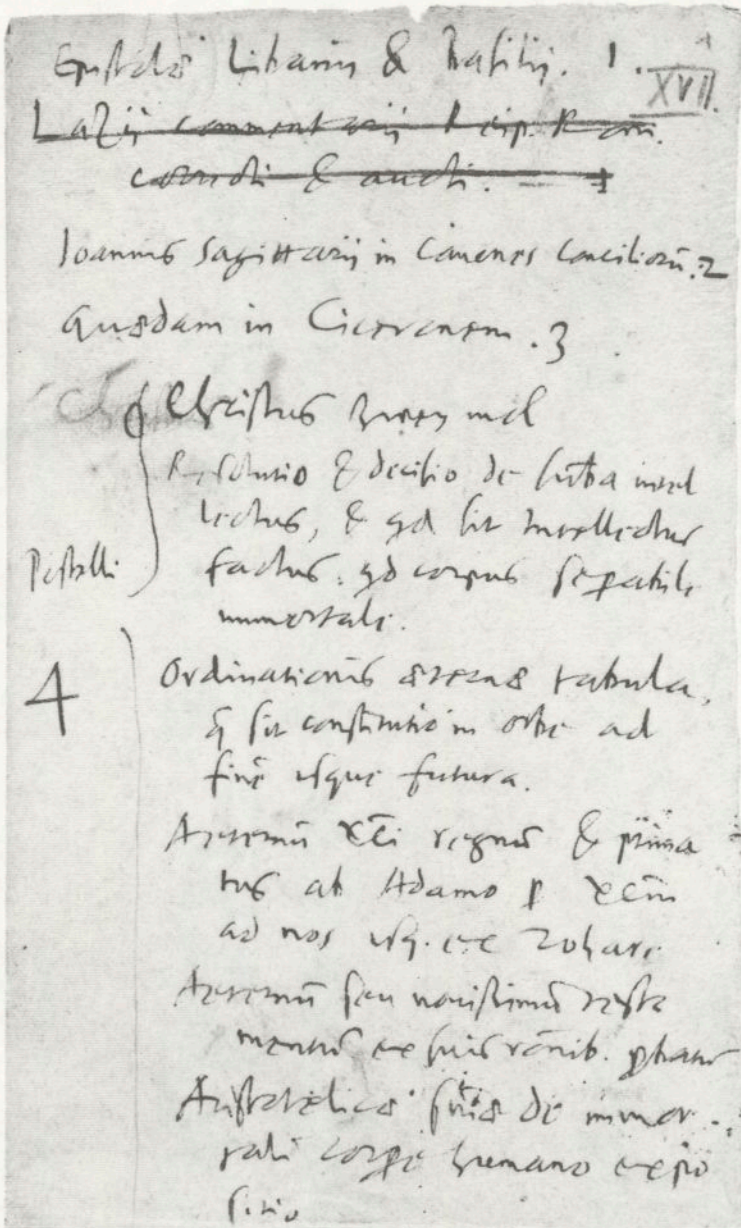 Epistolæ Libanii & Basilij. 1.
XVII.
Lazij commentarij Reip. Rom.
&
Ioannis Sagittarij in Canones Conciliorū. 2
Quædam in Ciceronem. 3
Christus
Resolutio & decisio de intel
lectus, & qd sit Intellectus
factus, qd corpus sepabile
immortale.
Postelli
4
Ordinationis æternæ tabula,
q̄ sit constitutio in orbe ad
finē usque futura.
Aeternū Xr̄i regnū & prima
tus ab Adamo p Xr̄m
ad nos usq. ex Zohare
Aeternū seu novissimū testa
mentū ex suis rōnib. pbatū
Aristotelicæ sn̄iæ de immor
tali corpe humano expo
sitio